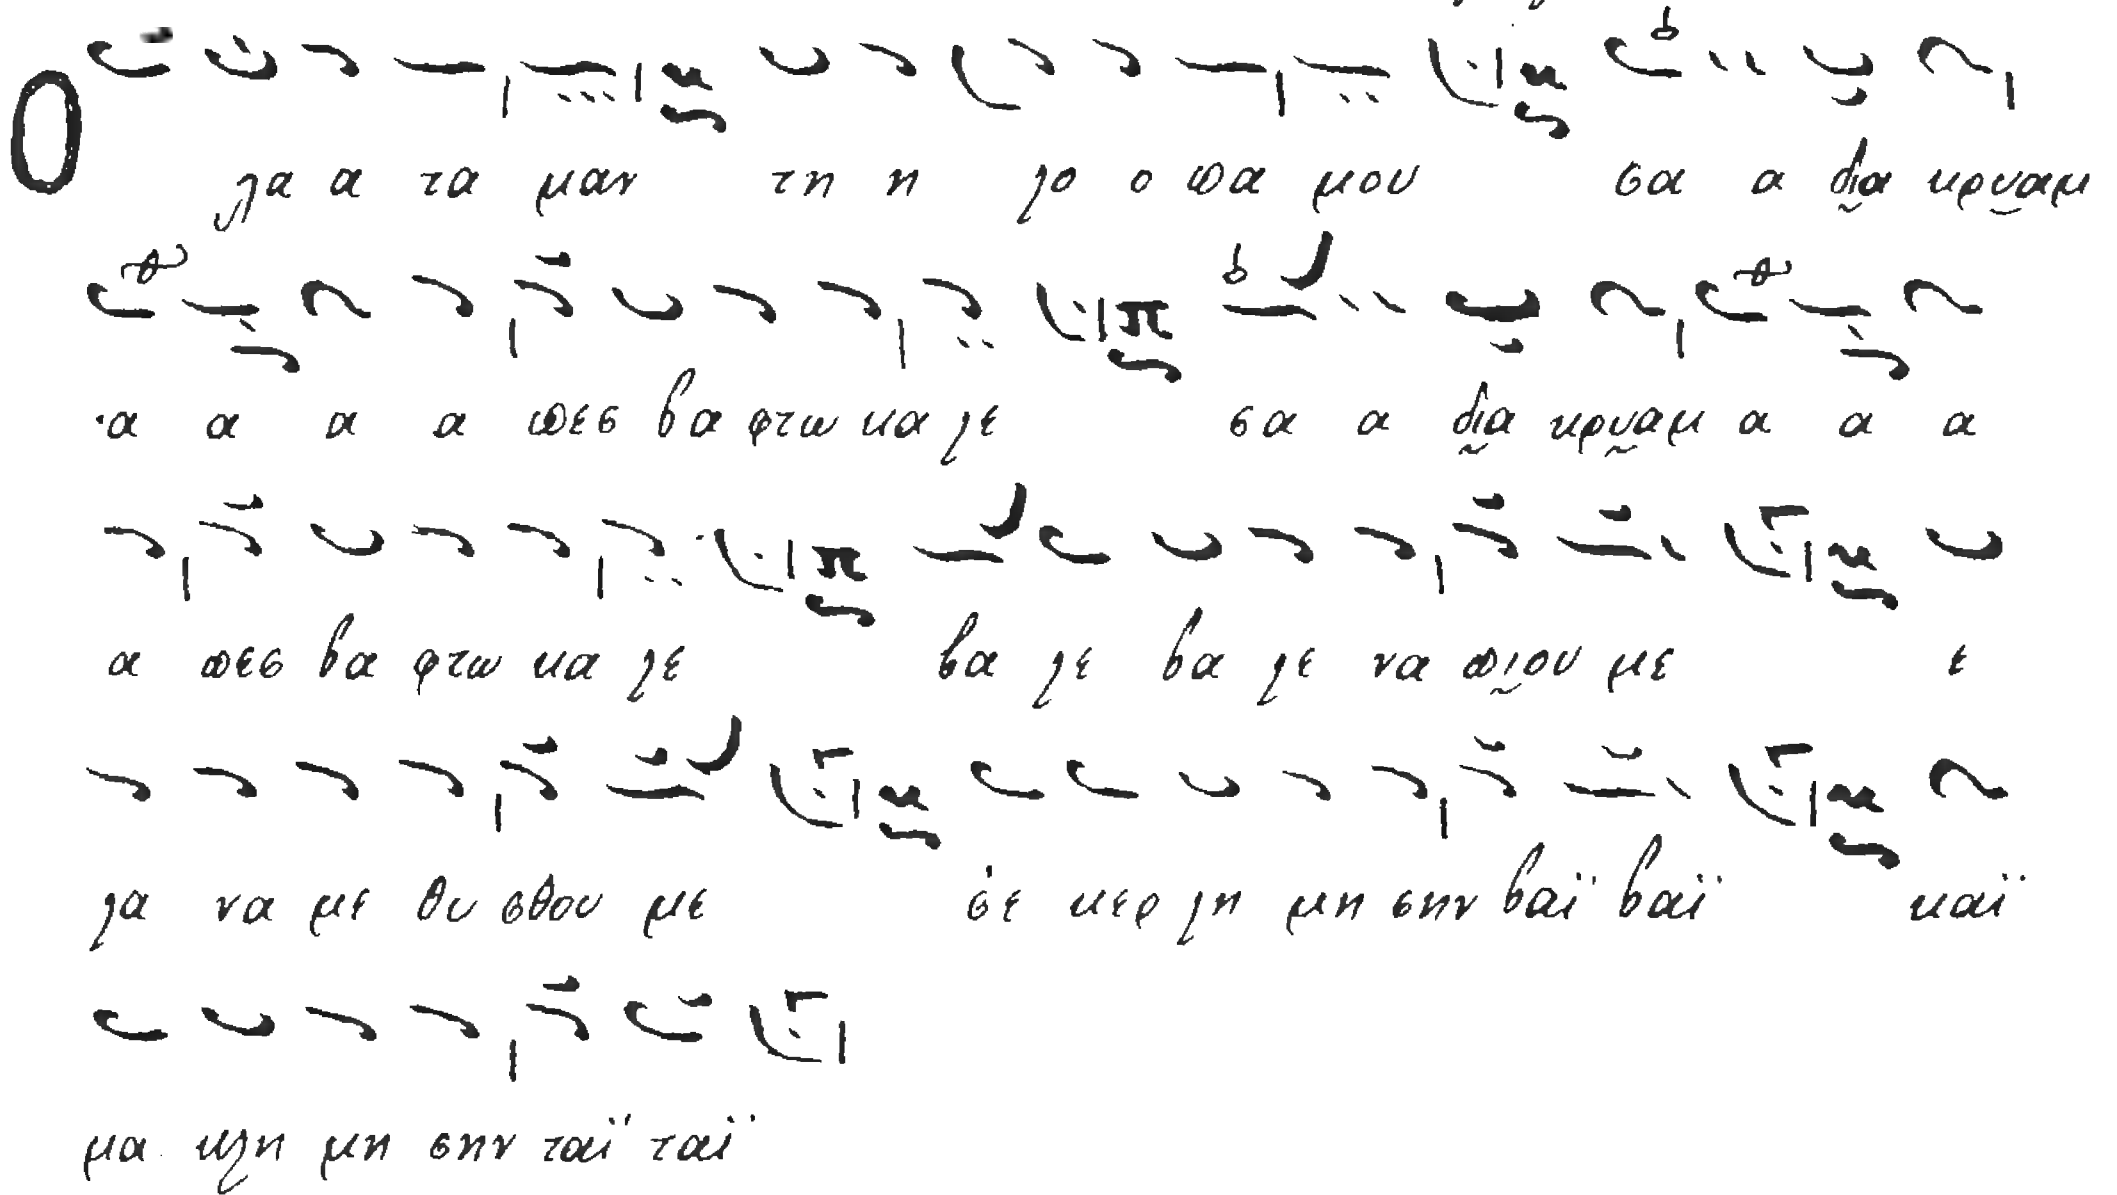 Ο λα α τα μαν τη η λο ο πα μου σα α δια κρυαμ
α α α α πες βα φτω κα λε σα α δια κρυαμ α α α
α πες βα φτω κα λε βα λε βα λε να πιου με ε
λα να με θυ σθου με σε κερ λη μη σην βαϊ βαϊ καϊ
μα κλη μη σην ταϊ ταϊ